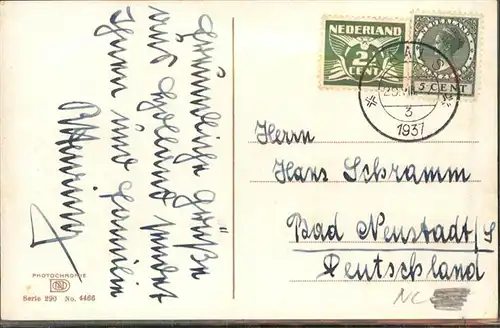 Freundliche Grüße
aus Holland sendet
Ihnen und Familie
PHOTOCHROMIE
Serie 290 No. 4466
NEDERLAND
2½
CENT
NEDERLAND
5 CENT
3
1937
Herrn
Hans Schramm
Bad Neustadt/S
Deutschland